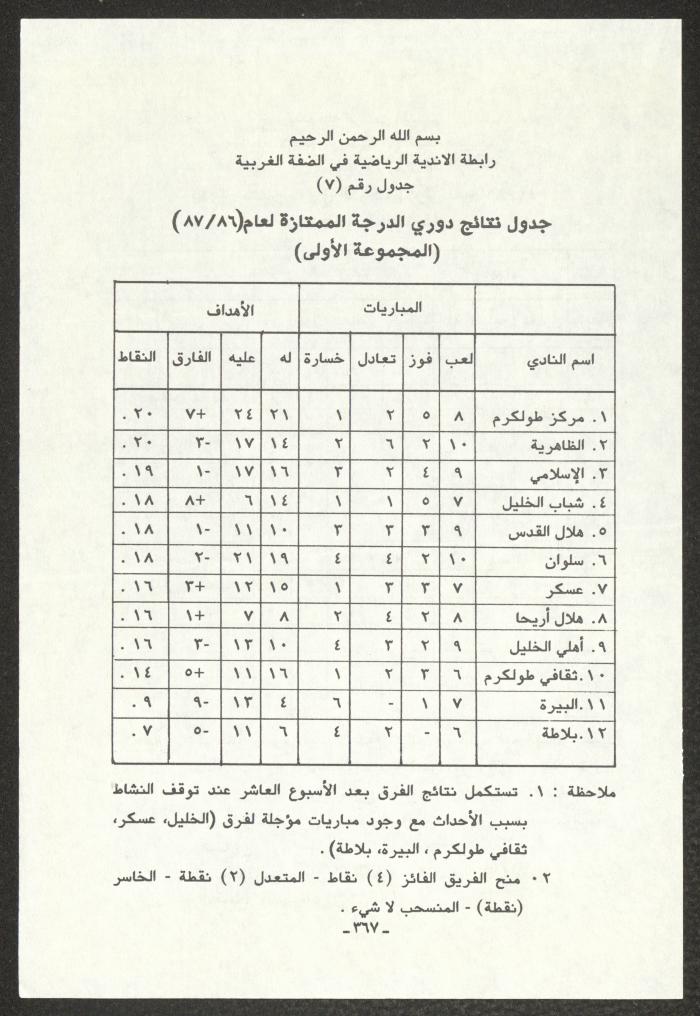 بسم الله الرحمن الرحيم
رابطة الاندية الرياضية في الضفة الغربية
جدول رقم (٧)
جدول نتائج دوري الدرجة الممتازة لعام(٨٧/٨٦)
(المجموعة الأولى)
المباريات الأهداف
اسم النادي لعب فوز تعادل خسارة له عليه الفارق النقاط
١. مركز طولكرم ٨ ٥ ٢ ١ ٢١ ٢٤ +٧ ٢٠.
٢. الظاهرية ١٠ ٢ ٦ ٢ ١٤ ١٧ -٣ ٢٠.
٣. الإسلامي ٩ ٤ ٢ ٣ ١٦ ١٧ -١ ١٩.
٤. شباب الخليل ٧ ٥ ١ ١ ١٤ ٦ +٨ ١٨.
٥. هلال القدس ٩ ٣ ٣ ٣ ١٠ ١١ -١ ١٨.
٦. سلوان ١٠ ٢ ٤ ٤ ١٩ ٢١ -٢ ١٨.
٧. عسكر ٧ ٣ ٣ ١ ١٥ ١٢ +٣ ١٦.
٨. هلال أريحا ٨ ٢ ٤ ٢ ٨ ٧ +١ ١٦.
٩. أهلي الخليل ٩ ٢ ٣ ٤ ١٠ ١٣ -٣ ١٦.
١٠.ثقافي طولكرم ٦ ٣ ٢ ١ ١٦ ١١ +٥ ١٤.
١١.البيرة ٧ ١ - ٦ ٤ ١٣ -٩ ٩.
١٢.بلاطة ٦ - ٢ ٤ ٦ ١١ -٥ ٧.
ملاحظة : ١. تستكمل نتائج الفرق بعد الأسبوع العاشر عند توقف النشاط
بسبب الأحداث مع وجود مباريات مؤجلة لفرق (الخليل، عسكر،
ثقافي طولكرم ، البيرة، بلاطة) .
٢٠ منح الفريق الفائز (٤) نقاط - المتعدل (٢) نقطة - الخاسر
(نقطة) - المنسحب لا شيء .
ـ٣٦٧ـ